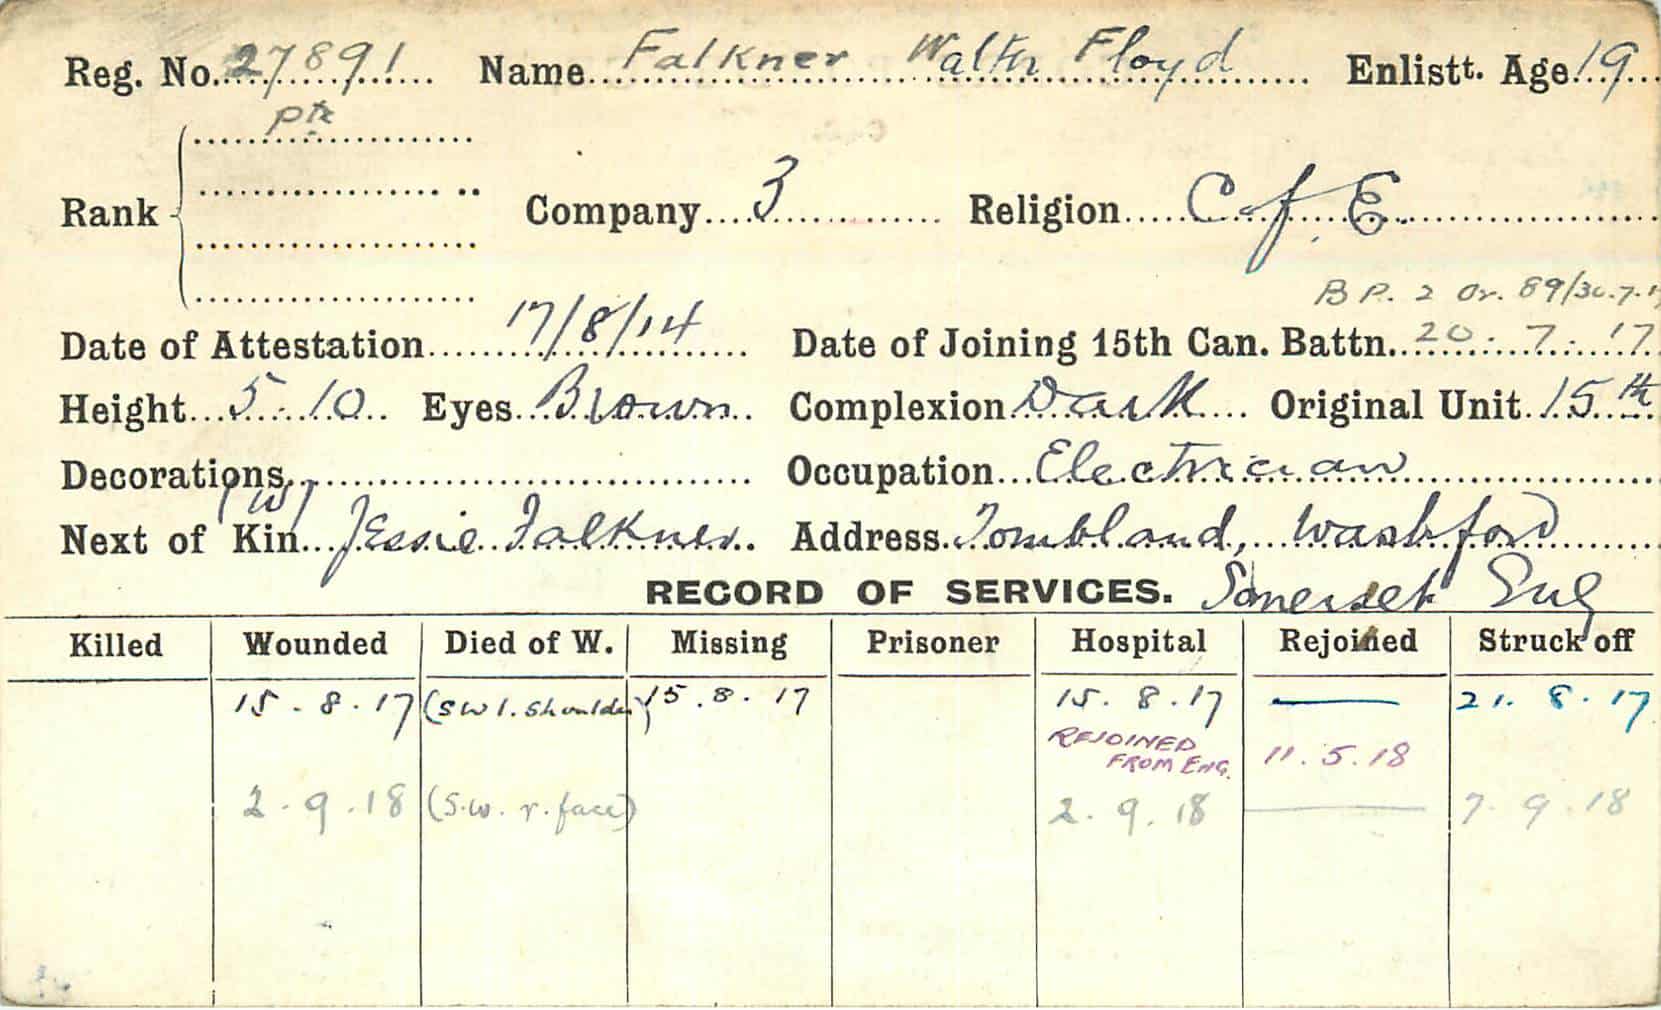 Reg. No. 27891 Name Falkner Walter Floyd Enlistt. Age 19
Pte
Rank Company 3 Religion C of E.
B P. 2 Or. 89/30.7.17
Date of Attestation 17/8/14 Date of Joining 15th Can. Battn. 20.7.17
Height 5.10 Eyes Brown Complexion Dark Original Unit 15th
Decorations Occupation Electrician
(W)
Next of Kin Jessie Falkner Address Tombland, Washford
RECORD OF SERVICES. Somerset Eng
Killed Wounded Died of W. Missing Prisoner Hospital Rejoined Struck off
15.8.17 (S W l. Shoulder) 15.8.17 15.8.17 — 21.8.17
REJOINED FROM ENG. 11.5.18
2.9.18 (S.W. r. face) 2.9.18 — 7.9.18